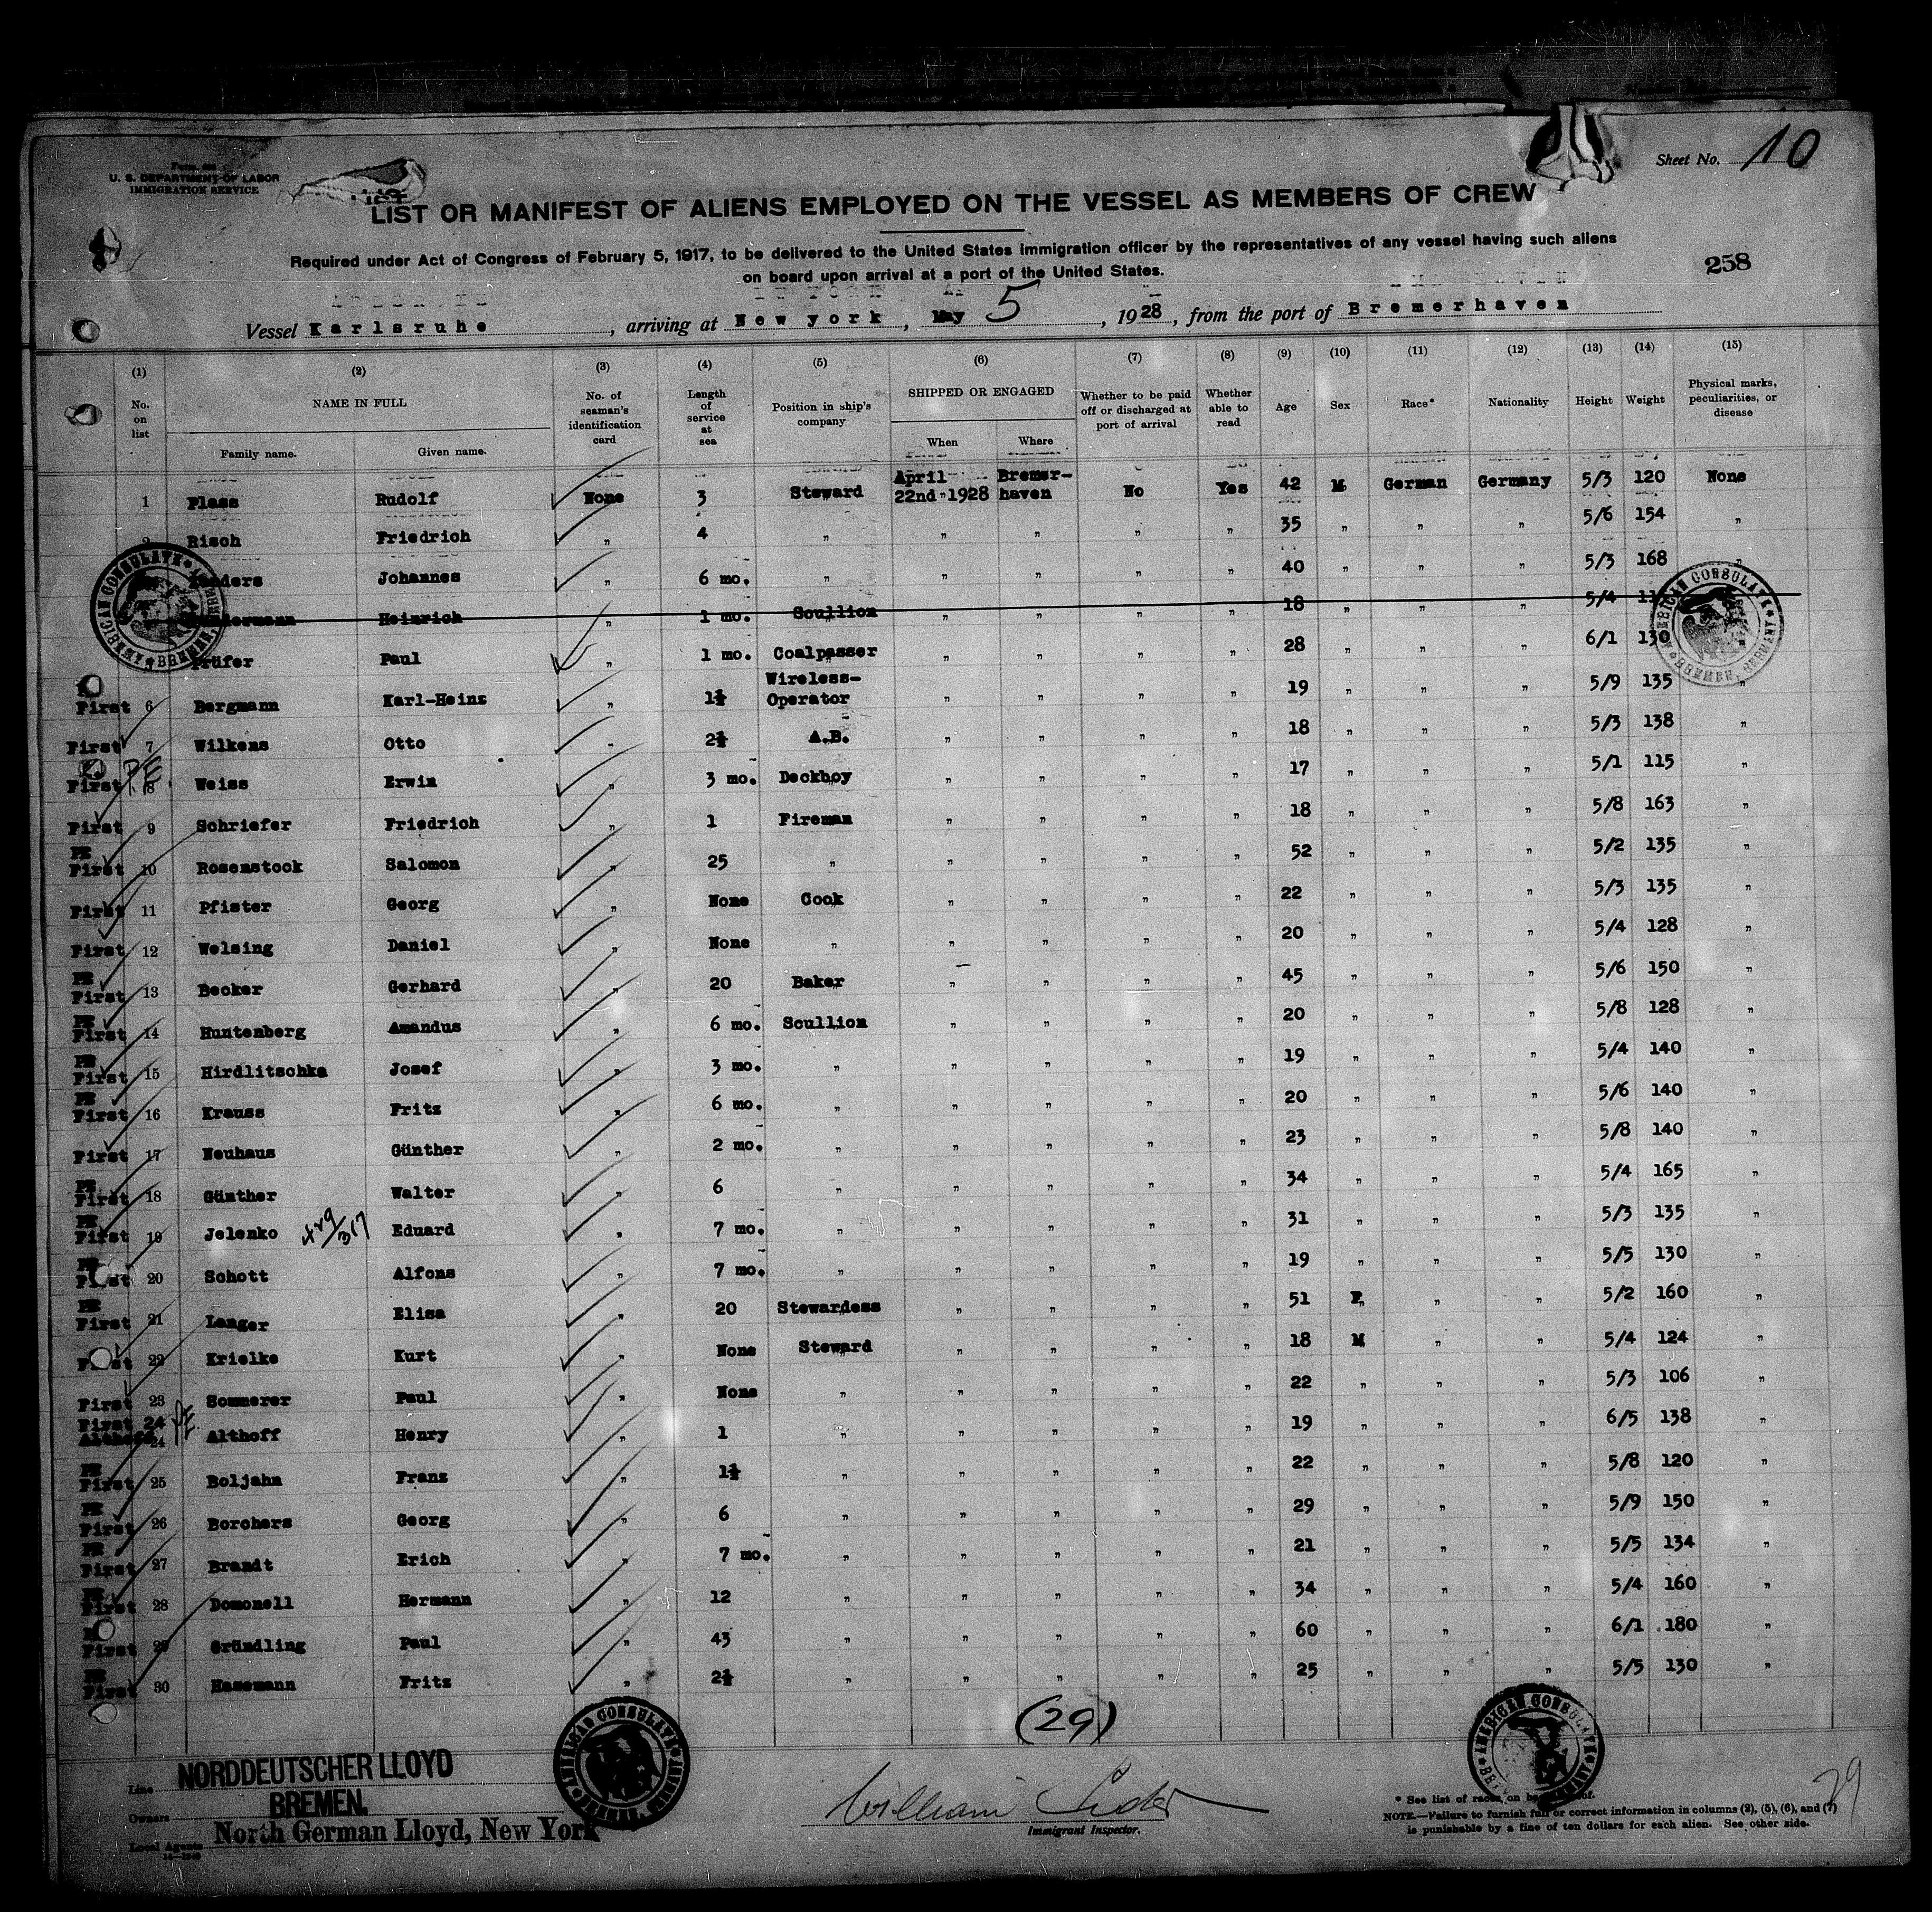 Sheet No. 10
U. S. DEPARTMENT OF LABOR
IMMIGRATION SERVICE
LIST OR MANIFEST OF ALIENS EMPLOYED ON THE VESSEL AS MEMBERS OF CREW
Required under Act of Congress of February 5, 1917, to be delivered to the United States immigration officer by the representatives of any vessel having such aliens
on board upon arrival at a port of the United States.
258
Vessel Karlsruhe , arriving at New york , May 5 , 1928 , from the port of Bremerhaven
(1) (2) (3) (4) (5) (6) (7) (8) (9) (10) (11) (12) (13) (14) (15)
No. on list NAME IN FULL Family name. Given name. No. of seaman's identification card Length of service at sea Position in ship's company SHIPPED OR ENGAGED When Where Whether to be paid off or discharged at port of arrival Whether able to read Age Sex Race* Nationality Height Weight Physical marks, peculiarities, or disease
1 Plass Rudolf None 3 Steward April 22nd 1928 Bremer-haven No Yes 42 M German Germany 5/3 120 None
Risch Friedrich " 4 " " " " " 35 " " " 5/6 154 "
Johannes " 6 mo. " " " " " 40 " " " 5/3 168 "
Heinrich " 1 mo. Scullion " " " " 18 " " " 5/4
Prüfer Paul " 1 mo. Coalpasser " " " " 28 " " " 6/1 130
First 6 Bergmann Karl-Heinz " Wireless-Operator " " " " 19 " " " 5/9 135 "
First 7 Wilkens Otto " A.B. " " " " 18 " " " 5/3 138 "
First PE 8 Weiss Erwin " 3 mo. Deckboy " " " " 17 " " " 5/1 115 "
First 9 Schriefer Friedrich " 1 Fireman " " " " 18 " " " 5/8 163 "
PE First 10 Rosenstock Salomon " 25 " " " " " 52 " " " 5/2 135 "
First 11 Pfister Georg " None Cook " " " " 22 " " " 5/3 135 "
First 12 Welsing Daniel " None " " " " " 20 " " " 5/4 128 "
PE First 13 Becker Gerhard " 20 Baker " " " " 45 " " " 5/6 150 "
PE First 14 Huntenberg Amandus " 6 mo. Scullion " " " " 20 " " " 5/8 128 "
PE First 15 Hirdlitschka Josef " 3 mo. " " " " " 19 " " " 5/4 140 "
PE First 16 Krauss Fritz " 6 mo. " " " " " 20 " " " 5/6 140 "
First 17 Neuhaus Günther " 2 mo. " " " " " 23 " " " 5/8 140 "
PE First 18 Günther Walter " 6 " " " " " 34 " " " 5/4 165 "
PE First 19 Jelenko Eduard " 7 mo. " " " " " 31 " " " 5/3 135 "
20 Schott Alfons " 7 mo. " " " " " 19 " " " 5/5 130 "
PE First 21 Langer Elisa " 20 Stewardess " " " " 51 F " " 5/2 160 "
22 Krielke Kurt " None Steward " " " " 18 M " " 5/4 124 "
First 23 Sommerer Paul " None " " " " " 22 " " " 5/3 106 "
First 24 Althoff 24 PE Althoff Henry " 1 " " " " " 19 " " " 6/5 138 "
PE First 25 Boljahn Franz " " " " " " 22 " " " 5/8 120 "
PE First 26 Borchers Georg " 6 " " " " " 29 " " " 5/9 150 "
PE First 27 Brandt Erich " 7 mo. " " " " " 21 " " " 5/5 134 "
PE First 28 Domonell Hermann " 12 " " " " " 34 " " " 5/4 160 "
First 29 Gründling Paul " 43 " " " " " 60 " " " 6/1 180 "
PE First 30 Hasemann Fritz " " " " " " 25 " " " 5/5 130 "
(29)
AMERICAN CONSULATE BREMEN, GERMANY
Line NORDDEUTSCHER LLOYD
Owners BREMEN.
Local Agents North German Lloyd, New York
William
Immigrant Inspector.
* See list of races on
NOTE.—Failure to furnish full or correct information in columns (2), (5), (6), and (7)
is punishable by a fine of ten dollars for each alien. See other side.
29